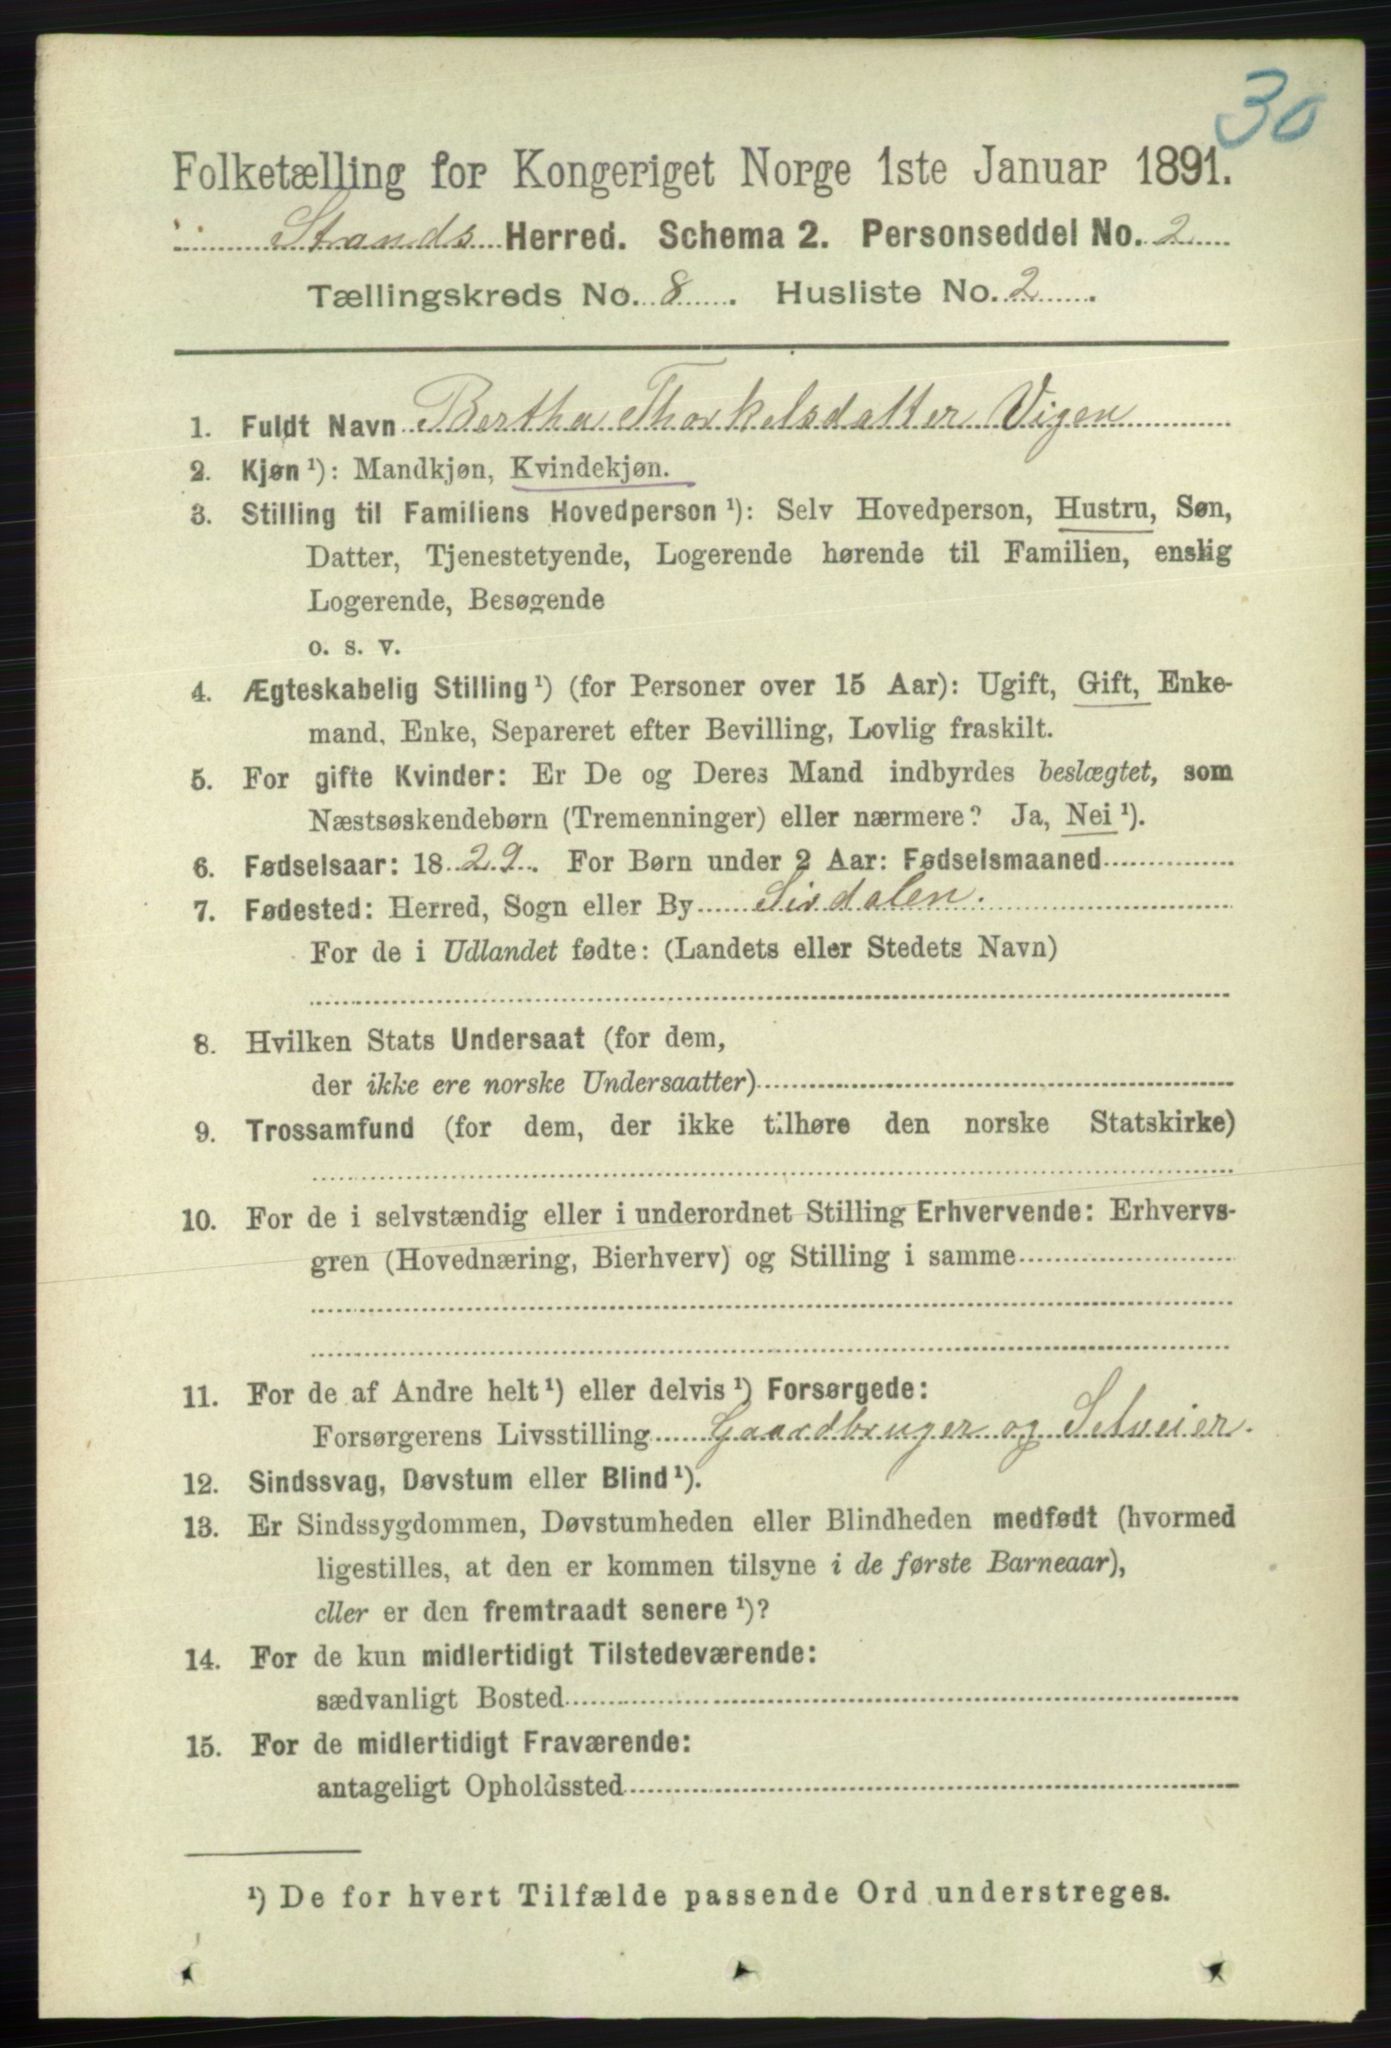 30
Folketælling for Kongeriget Norge 1ste Januar 1891.
Strands Herred. Schema 2. Personseddel No. 2
Tællingskreds No. 8. Husliste No. 2.
1. Fuldt Navn Bertha Thorkelsdatter Vigen
2. Kjøn ¹): Mandkjøn, Kvindekjøn.
3. Stilling til Familiens Hovedperson ¹): Selv Hovedperson, Hustru, Søn,
Datter, Tjenestetyende, Logerende hørende til Familien, enslig
Logerende, Besøgende
o. s. v.
4. Ægteskabelig Stilling ¹) (for Personer over 15 Aar): Ugift, Gift, Enke-
mand, Enke, Separeret efter Bevilling, Lovlig fraskilt.
5. For gifte Kvinder: Er De og Deres Mand indbyrdes beslægtet, som
Næstsøskendebørn (Tremenninger) eller nærmere? Ja, Nei ¹).
6. Fødselsaar: 1829. For Børn under 2 Aar: Fødselsmaaned
7. Fødested: Herred, Sogn eller By Sirdalen.
For de i Udlandet fødte: (Landets eller Stedets Navn)
8. Hvilken Stats Undersaat (for dem,
der ikke ere norske Undersaatter)
9. Trossamfund (for dem, der ikke tilhøre den norske Statskirke)
10. For de i selvstændig eller i underordnet Stilling Erhvervende: Erhvervs-
gren (Hovednæring, Bierhverv) og Stilling i samme
11. For de af Andre helt ¹) eller delvis ¹) Forsørgede:
Forsørgerens Livsstilling Gaardbruger og Selveier.
12. Sindssvag, Døvstum eller Blind ¹).
13. Er Sindssygdommen, Døvstumheden eller Blindheden medfødt (hvormed
ligestilles, at den er kommen tilsyne i de første Barneaar),
eller er den fremtraadt senere ¹)?
14. For de kun midlertidigt Tilstedeværende:
sædvanligt Bosted
15. For de midlertidigt Fraværende:
antageligt Opholdssted
¹) De for hvert Tilfælde passende Ord understreges.